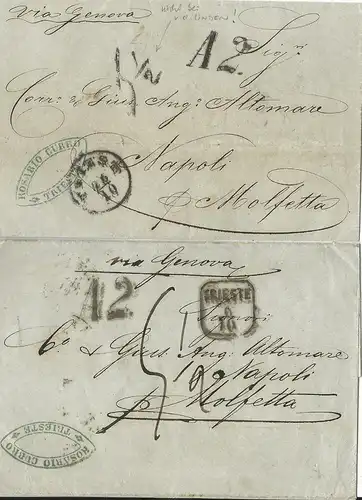 via Genova
v. d. LINDEN!
A2.
5 1/2
Sigri
Corr: & Gius: Ang: Altomare
Napoli
p Molfetta
ROSARIO CURRÒ
TRIESTE
TRIESTE
10
via Genova
A2
TRIESTE
9
10
Signori
Co & Gius. Ang: Altomare
Napoli
p Molfetta
ROSARIO CURRÒ
TRIESTE